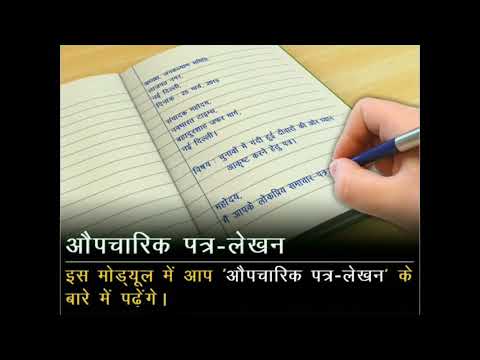 अध्यक्ष, जनकल्याण समिति,
लाजपत नगर,
नई दिल्ली,
दिनांक : 25 मार्च, 2015
संपादक महोदय,
नवभारत टाइम्स,
बहादुरशाह जफर मार्ग,
नई दिल्ली।
विषय : चुनावों में गंदी हुई दीवारों की ओर ध्यान
आकृष्ट करने हेतु पत्र।
महोदय,
मैं आपके लोकप्रिय समाचार-पत्र
औपचारिक पत्र-लेखन
इस मोड्यूल में आप 'औपचारिक पत्र-लेखन' के
बारे में पढ़ेंगे।